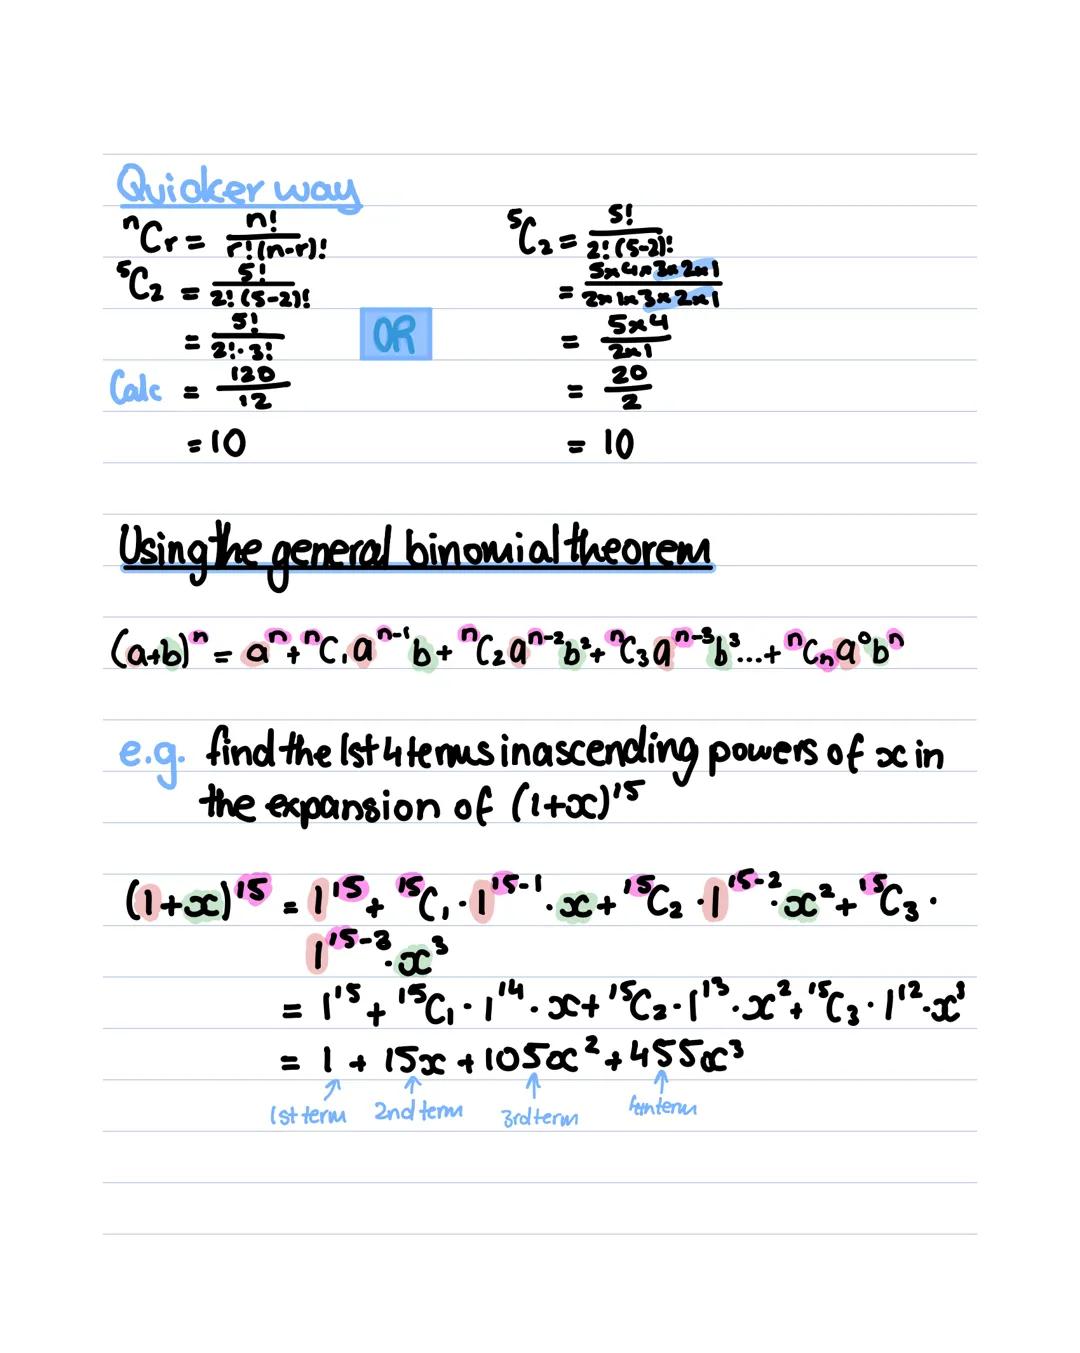 Quicker way
ⁿCr = n!/r!(n-r)!
⁵C₂ = 5!/2!(5-2)!
= 5!/2!·3!
Calc = 120/12
= 10
OR
⁵C₂ = 5!/2!(5-2)!
= 5×4×3×2×1/2×1×3×2×1
= 5×4/2×1
= 20/2
= 10
Using the general binomial theorem
(a+b)ⁿ = aⁿ + ⁿC₁aⁿ⁻¹b + ⁿC₂aⁿ⁻²b² + ⁿC₃aⁿ⁻³b³...+ ⁿCₙa⁰bⁿ
e.g. find the 1st 4 terms in ascending powers of x in
the expansion of (1+x)¹⁵
(1+x)¹⁵ = 1¹⁵ + ¹⁵C₁·1¹⁵⁻¹·x + ¹⁵C₂·1¹⁵⁻²·x² + ¹⁵C₃·
1¹⁵⁻³·x³
= 1¹⁵ + ¹⁵C₁·1¹⁴·x + ¹⁵C₂·1¹³·x² + ¹⁵C₃·1¹²·x³
= 1 + 15x + 105x² + 455x³
1st term 2nd term 3rd term 4th term